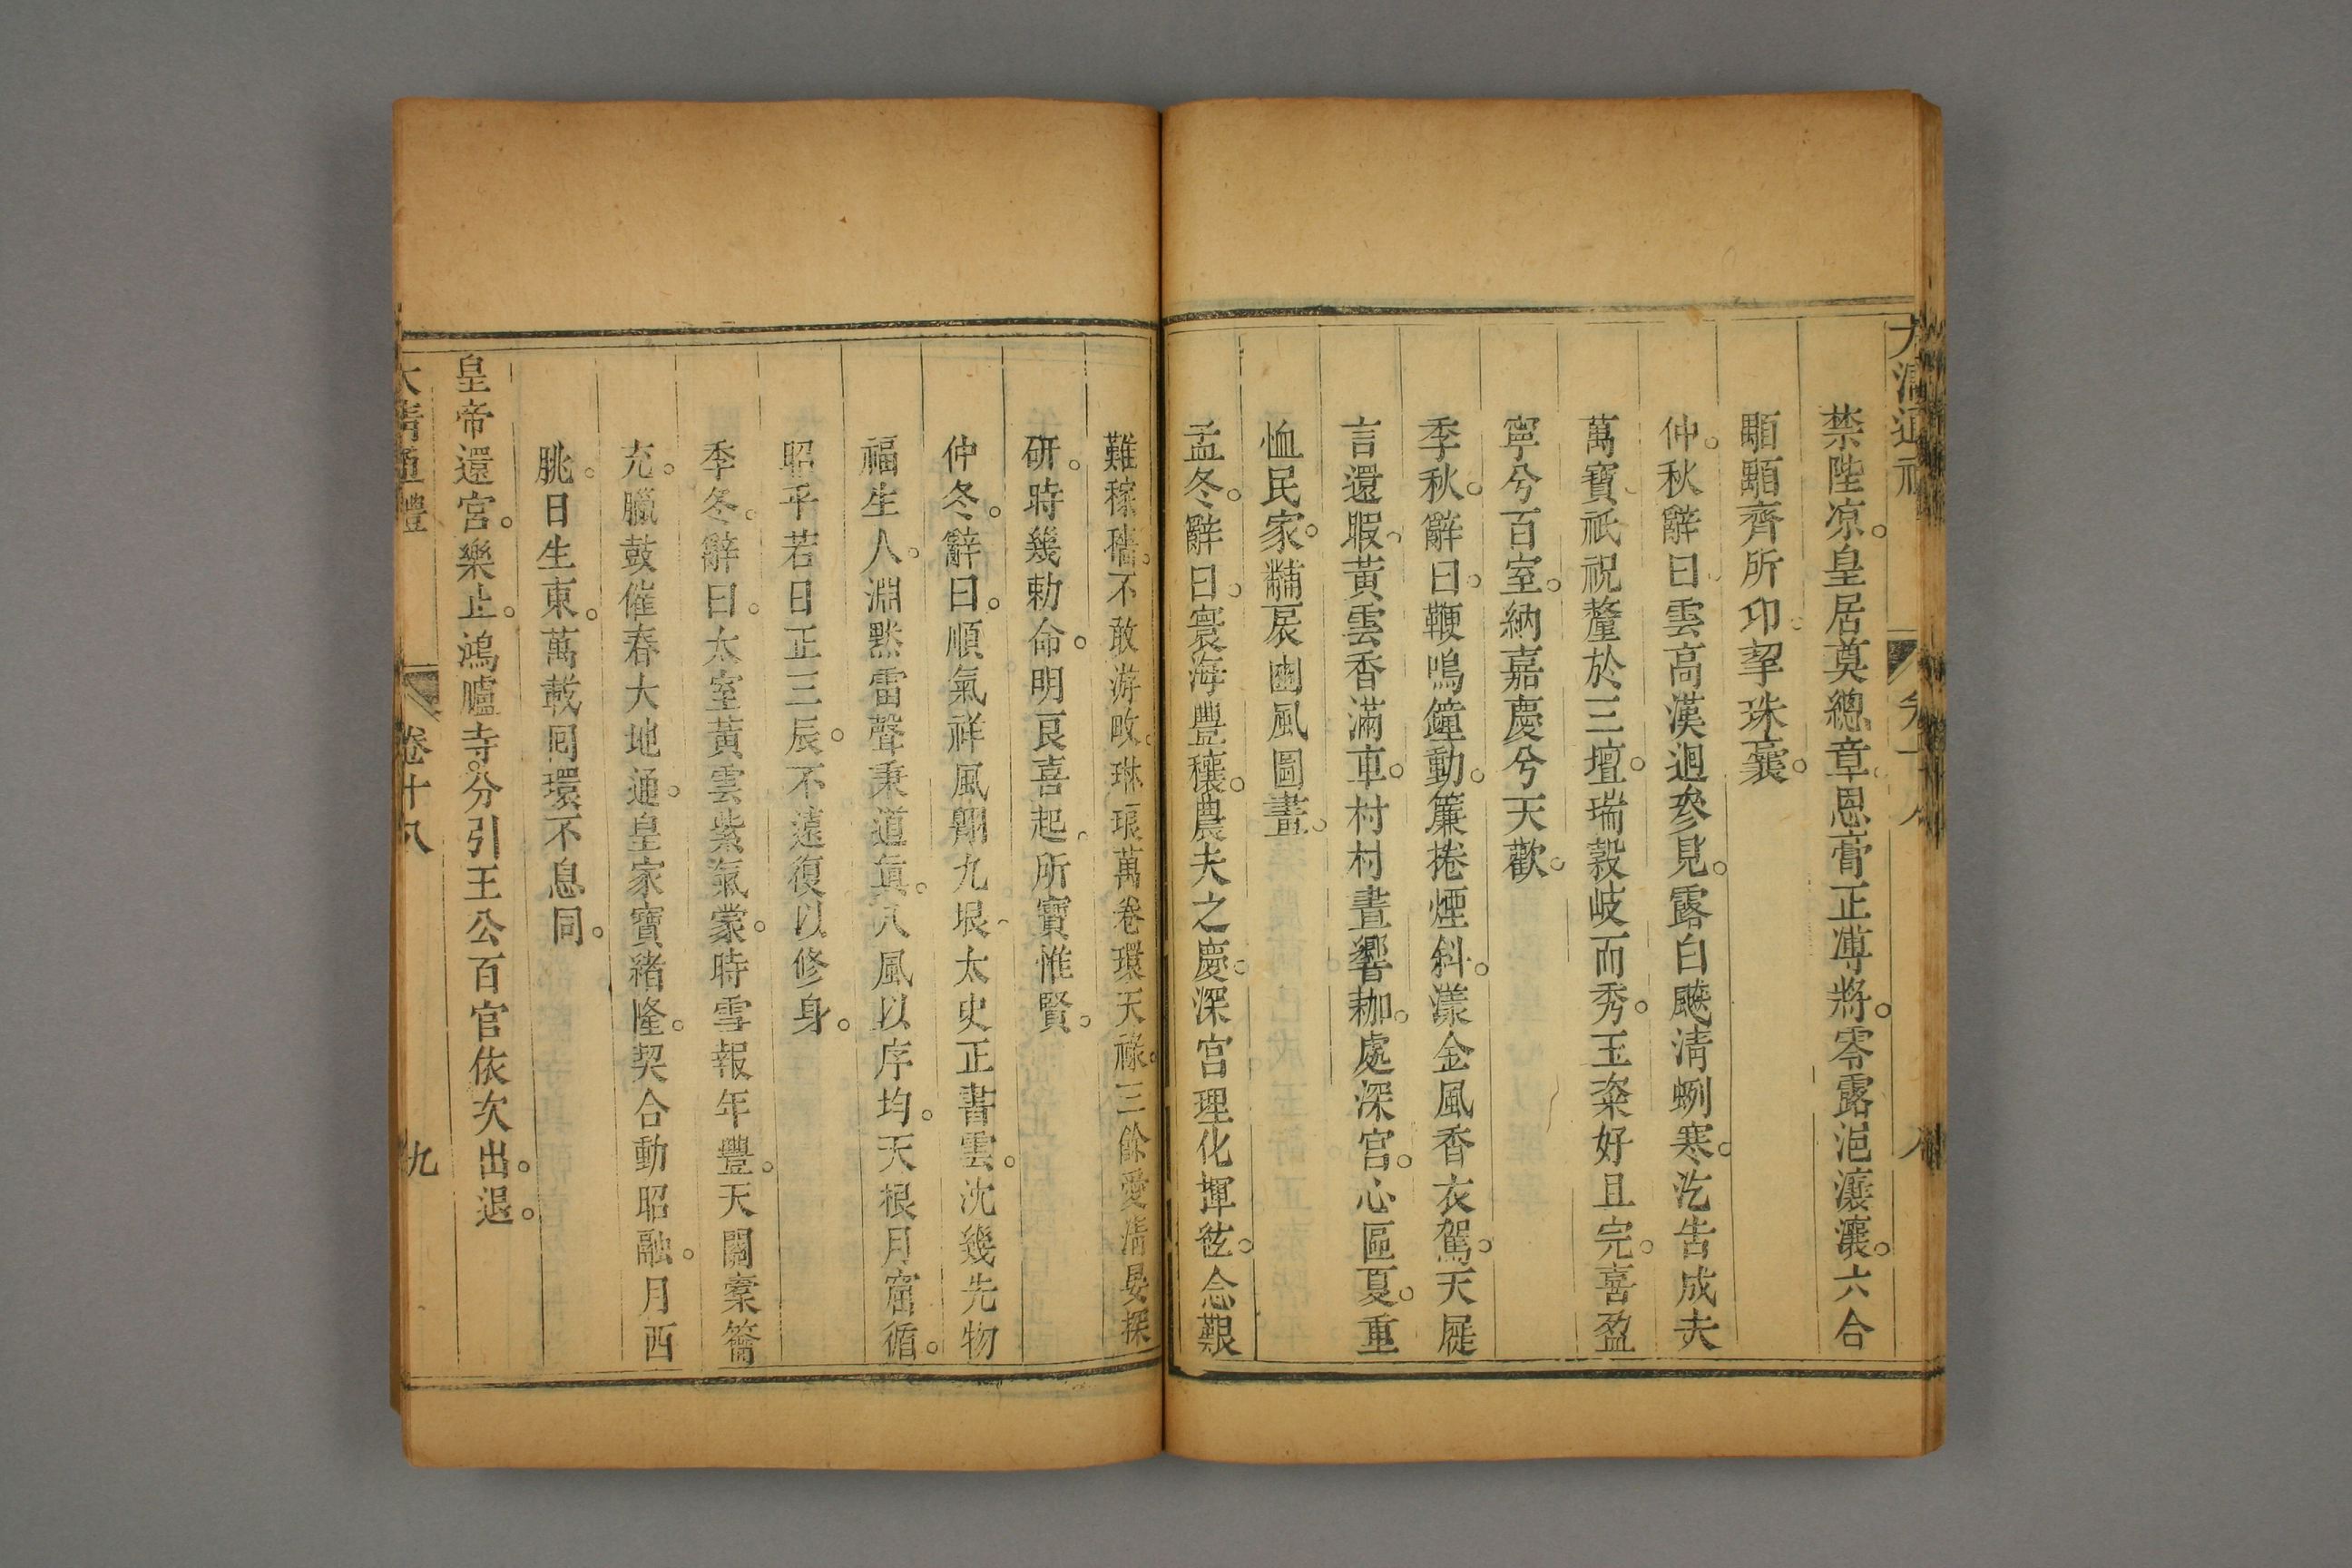 禁陛凉。皇居奠總章。恩膏正溥將。零露浥瀼瀼。六合
顒顒齊所卬。挈珠囊。
仲秋辭曰。雲高漢迥參見。露白飈淸蜊寒。汔告成夫
萬寶。祇祝釐於三壇。瑞穀岐而秀。玉粢好且完。喜盈
寧兮百室。納嘉慶兮天歡。
季秋。辭曰。鞭鳴鐘動。簾捲煙斜。漾金風香衣。駕天屣
言還暇。黃雲香滿車。村村晝響耞。處深宮。心區夏。重
恤民家。黼扆豳風圖畫。
孟冬。辭曰。寰海豐穰。農夫之慶。深宮理化揮絃。念艱
難稼穡。不敢游畋。琳琅萬卷環天祿。三餘愛淸晏探
研。時幾勅命。明良喜起。所寶惟賢。
仲冬。辭曰。順氣祥風翱九垠。太史正書雲。沈幾先物
福生人。淵默雷聲秉道眞。八風以序均。天根月窟循。
昭乎若日正三辰。不遠復以修身。
季冬。辭曰。太室黃雲紫氣蒙。時雪報年豐。天關橐籥
充。臘鼓催春大地通。皇家寶緒隆。契合動昭融。月西
朓。日生東。萬載囘環不息同。
皇帝還宮。樂止。鴻臚寺。分引王公百官依次出。退。
大淸通禮
卷十八
九